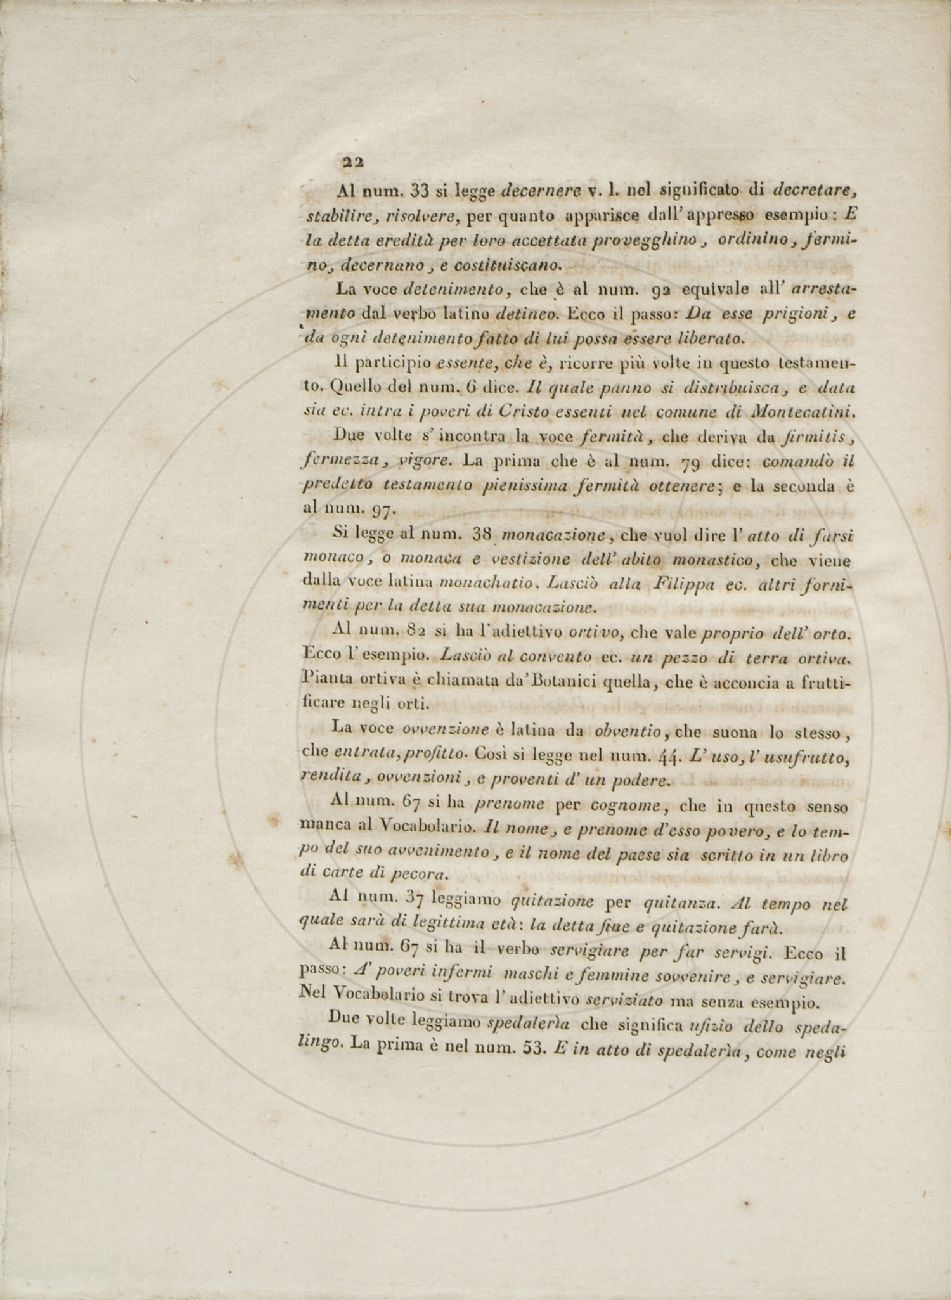 22
Al num. 33 si legge decernere v. l. nel significato di decretare,
stabilire, risolvere, per quanto apparisce dall' appresso esempio: E
la detta eredità per loro accettata provegghino, ordinino, fermi-
no, decernano, e costituiscano.
La voce detenimento, che è al num. 92 equivale all' arresta-
mento dal verbo latino detineo. Ecco il passo: Da esse prigioni, e
da ogni detenimento fatto di lui possa essere liberato.
Il participio essente, che è, ricorre più volte in questo testamen-
to. Quello del num. 6 dice. Il quale panno si distribuisca, e data
sia ec. intra i poveri di Cristo essenti nel comune di Montecatini.
Due volte s' incontra la voce fermità, che deriva da firmitis,
fermezza, vigore. La prima che è al num. 79 dice: comandò il
predetto testamento pienissima fermità ottenere; e la seconda è
al num. 97.
Si legge al num. 38 monacazione, che vuol dire l' atto di farsi
monaco, o monaca e vestizione dell' abito monastico, che viene
dalla voce latina monachatio. Lasciò alla Filippa ec. altri forni-
menti per la detta sua monacazione.
Al num. 82 si ha l'adiettivo ortivo, che vale proprio dell' orto.
Ecco l' esempio. Lasciò al convento ec. un pezzo di terra ortiva.
Pianta ortiva è chiamata da' Botanici quella, che è acconcia a frutti-
ficare negli orti.
La voce ovvenzione è latina da obventio, che suona lo stesso,
che entrata, profitto. Così si legge nel num. 44. L' uso, l' usufrutto,
rendita, ovvenzioni, e proventi d' un podere.
Al num. 67 si ha prenome per cognome, che in questo senso
manca al Vocabolario. Il nome, e prenome d'esso povero, e lo tem-
po del suo avvenimento, e il nome del paese sia scritto in un libro
di carte di pecora.
Al num. 37 leggiamo quitazione per quitanza. Al tempo nel
quale sarà di legittima età: la detta fine e quitazione farà.
Al num. 67 si ha il verbo servigiare per far servigi. Ecco il
passo: A' poveri infermi maschi e femmine sovvenire, e servigiare.
Nel Vocabolario si trova l' adiettivo serviziato ma senza esempio.
Due volte leggiamo spedalerìa che significa ufizio dello speda-
lingo. La prima è nel num. 53. E in atto di spedalerìa, come negli